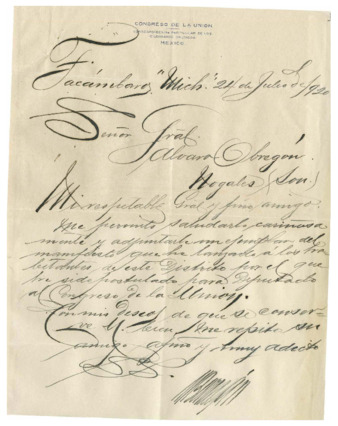 CONGRESO DE LA UNION
CORRESPONDENCIA PARTICULAR DE LOS
CIUDADANOS DIPUTADOS
MEXICO
Tacámbaro, "Mich." 24 de Julio de 1920
Señor Gral.
Alvaro Obregón.
Nogales (Son)
Mi respetable Gral y fino amigo:
Me permito saludarlo cariñosa
mente y adjuntarle un ejemplar del
manifiesto que he lanzado a los ha
bitantes de este Distrito por el que
he sido postulado para Diputado
al Congreso de la Unión.
Con mis deseos de que se conser
ve bien me repito su
amigo afmo y muy adicto